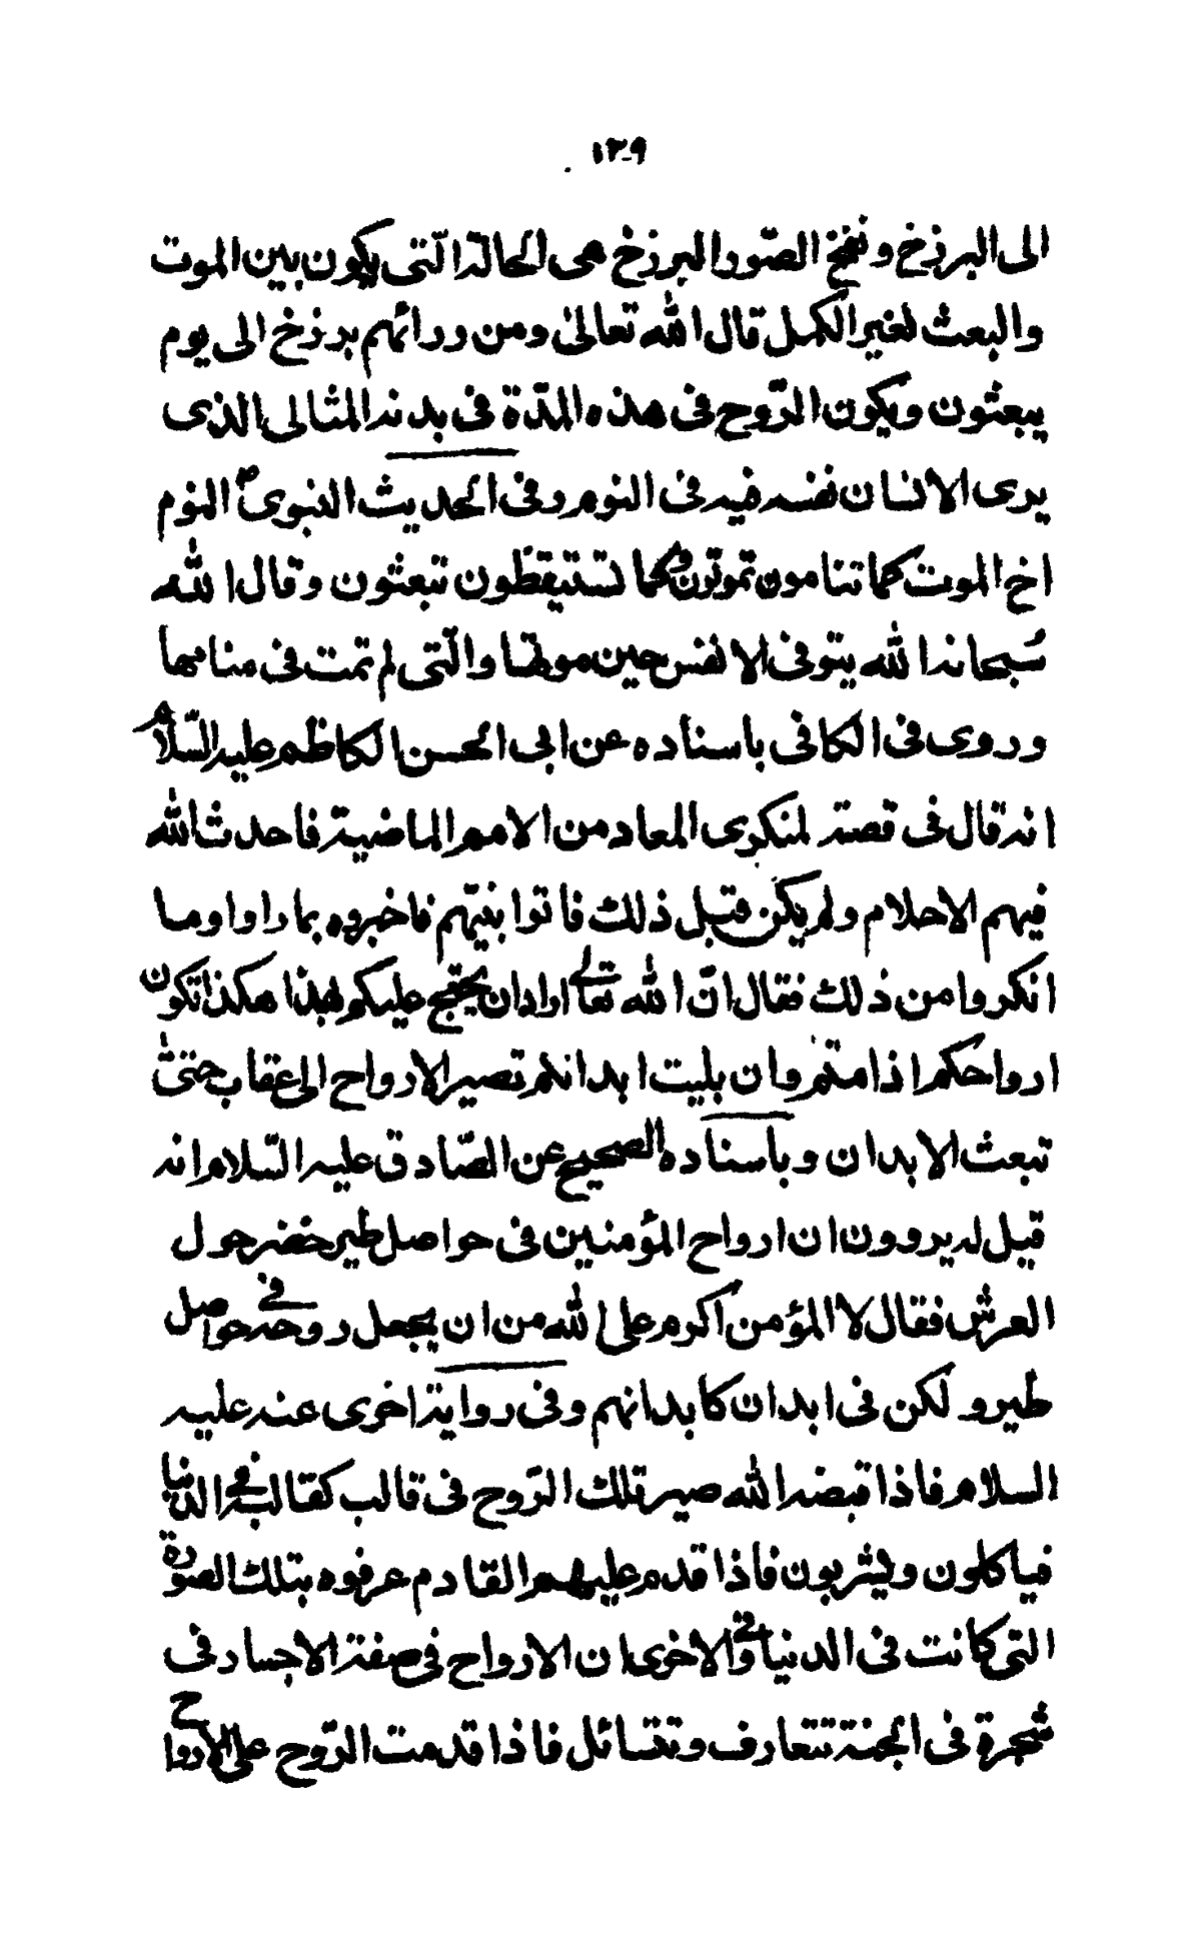 ١٣٩
الى البرزخ ونفخ الصّور البرزخ هى الحالة الّتى يكون بين الموت
والبعث لغير الكمل قال الله تعالىٰ ومن ورائهم برزخ الى يوم
يبعثون ويكون الرّوح فى هذه المدّة فى بدنه المثالى الذى
يرى الانسان نفسه فيه فى النوم وفى الحديث النبوى ص النوم
اخ الموت كما تنامون تموتون وكما تستيقظون تبعثون وقال الله
سُبحانه الله يتوفى الانفس حين موتها والّتى لم تمت فى منامها
وروى فى الكافى باسناده عن ابى الحسن الكاظم عليه السّلام
انه قال فى قصة لمنكرى المعاد من الامم الماضية فاحدث الله
فيهم الاحلام ولم يكن قبل ذلك فاتوا بنيّهم فاخبروه بما راوا وما
انكروا من ذلك فقال انّ الله تعالى اراد ان يحتج عليكم بهذا هكذا تكون
ارواحكم اذا متم وان بليت ابدانكم تصير الارواح الى عقاب حتىّٰ
تبعث الابدان وباسناده الصحيح عن الصّادق عليه السّلام انه
قيل له يروون ان ارواح المؤمنين فى حواصل طير خضر حول
العرش فقال لا المؤمن اكرم على الله من ان يجعل روحه فى حواصل
طير ولكن فى ابدان كابدانهم وفى رواية اخرى عنه عليه
السلام فاذا قبضه الله صير تلك الرّوح فى قالب كقالبه فى الدنيا
فياكلون ويشربون فاذا قدم عليهم القادم عرفوه بتلك الصّورة
التى كانت فى الدنيا وفى الاخرى ان الارواح فى صفة الاجساد فى
شجرة فى الجنة تتعارف وتتسائل فاذا قدمت الرّوح على الارواح